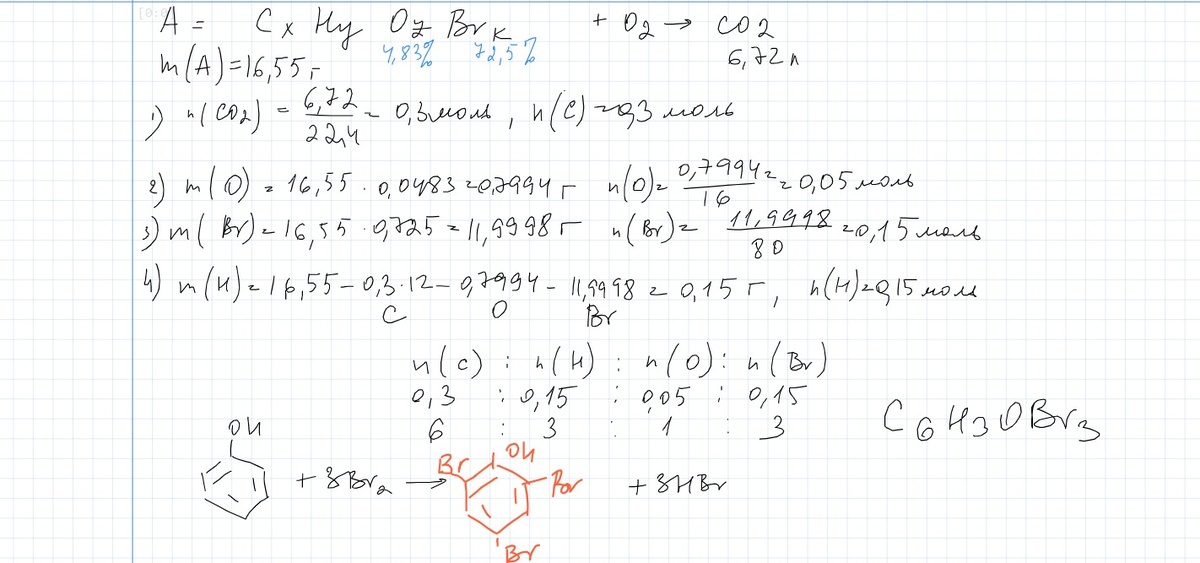 A = CxHyOzBrк + O2 → CO2
4,83% 72,5% 6,72 л
m(A)=16,55 г
1) n(CO2) = 6,72/22,4 = 0,3 моль, n(C)=0,3 моль
2) m(O) = 16,55 · 0,0483=0,7994 г n(O)= 0,7994/16 = = 0,05 моль
3) m(Br)=16,55·0,725=11,9998 г n(Br)= 11,9998/80 =0,15 моль
4) m(H)=16,55–0,3·12–0,7994–11,9998=0,15 г, n(H)=0,15 моль
C O Br
n(C) : n(H) : n(O) : n(Br)
0,3 : 0,15 : 0,05 : 0,15
6 : 3 : 1 : 3 C6H3OBr3
OH Br OH
+ 3Br2 → Br + 3HBr
Br